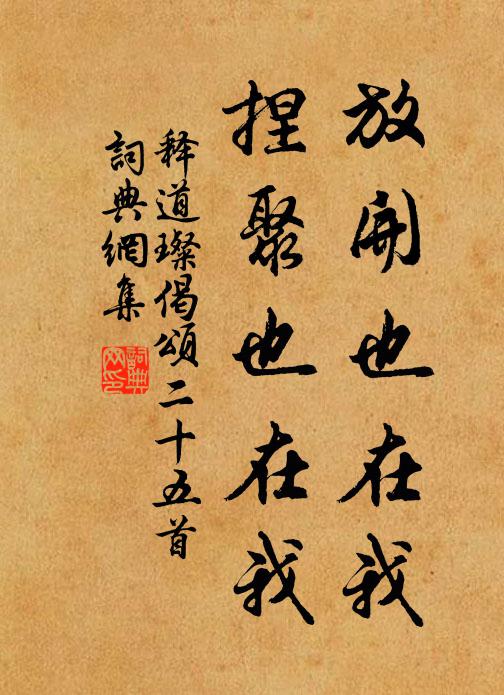 放開也在我
捏聚也在我
释道璨偈頌二十五首
詞典網集
詞典
网印